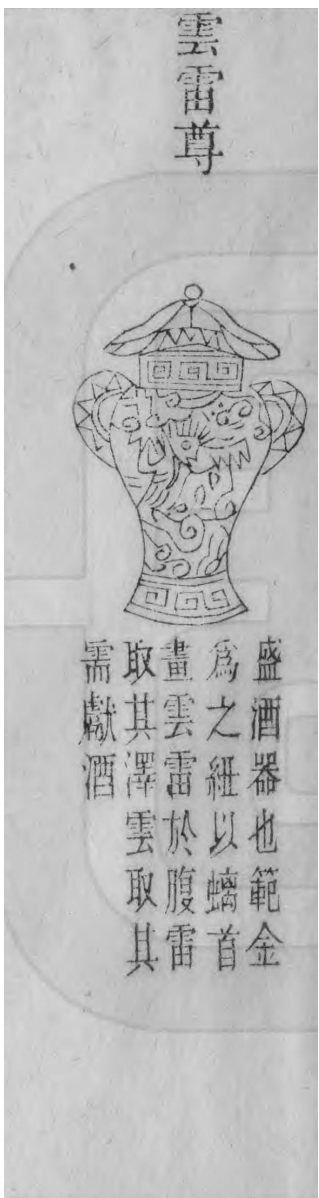 雲雷尊
盛酒器也範金
爲之紐以螭首
畫雲雷於腹雷
取其澤雲取其
需獻酒